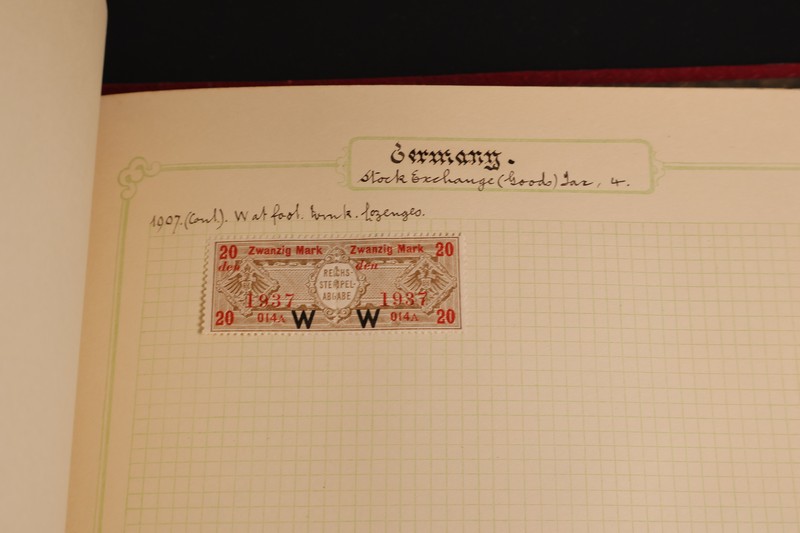 Germany.
Stock Exchange (Goods) Tax. 4.
1907. (Cont.). W at foot. Wmk. Lozenges.
20 Zwanzig Mark Zwanzig Mark 20
den den
REICHS-
STEMPEL-
ABGABE
1937 1937
20 014A W W 014A 20